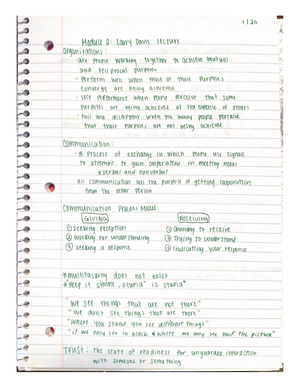 1/20
Module 2: Larry Davis Lecture
Organizations:
· are people working together to achieve mutual
and reciprocal purposes
· perform well when most of those purposes
converge are being achieved
· lose performance when people perceive that some
purposes are being achieved at the expense of others
· fail and disappear when too many people perceive
that their purposes are not being achieved
Communication:
· A process of exchange in which people use signals
to attempt to gain cooperation in meeting needs
*verbal and nonverbal
All communication has the purpose of getting cooperation
from the other person
Communication Process Model
GIVING RECEIVING
① seeking reception ① choosing to receive
② working for understanding ② Trying to understand
③ seeking a response ③ indicating your response
*multitasking does not exist
*keep it simple, stupid is stupid*
"we see things that are not there"
"we don't see things that are there"
"where you stand you see different things"
"if we only see in black & white we only see half the picture"
TRUST: the state of readiness for unguarded interaction
with someone or something